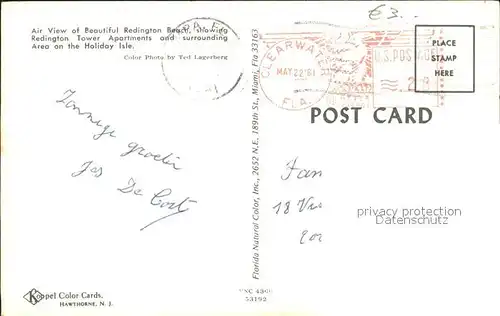 Air View of Beautiful Redington Beach, showing
Redington Tower Apartments and surrounding
Area on the Holiday Isle.
Color Photo by Ted Lagerberg
€3.-
CLEARWATER
MAY 22'61
FLA.
U.S. POSTAGE
PLACE
STAMP
HERE
POST CARD
Zonnige groeten
Jos De Cort
Florida Natural Color, Inc., 2652 N.E. 189th St., Miami, Fla. 33163
Jan
18
protected by copyright
Koppel Color Cards.
HAWTHORNE, N. J.
53192